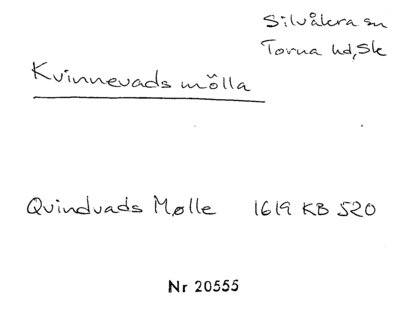 Silvåkra sn
Torna hd, Sk
Kvinnevads mölla
Qvindvads Mølle 1619 KB 520
Nr 20555